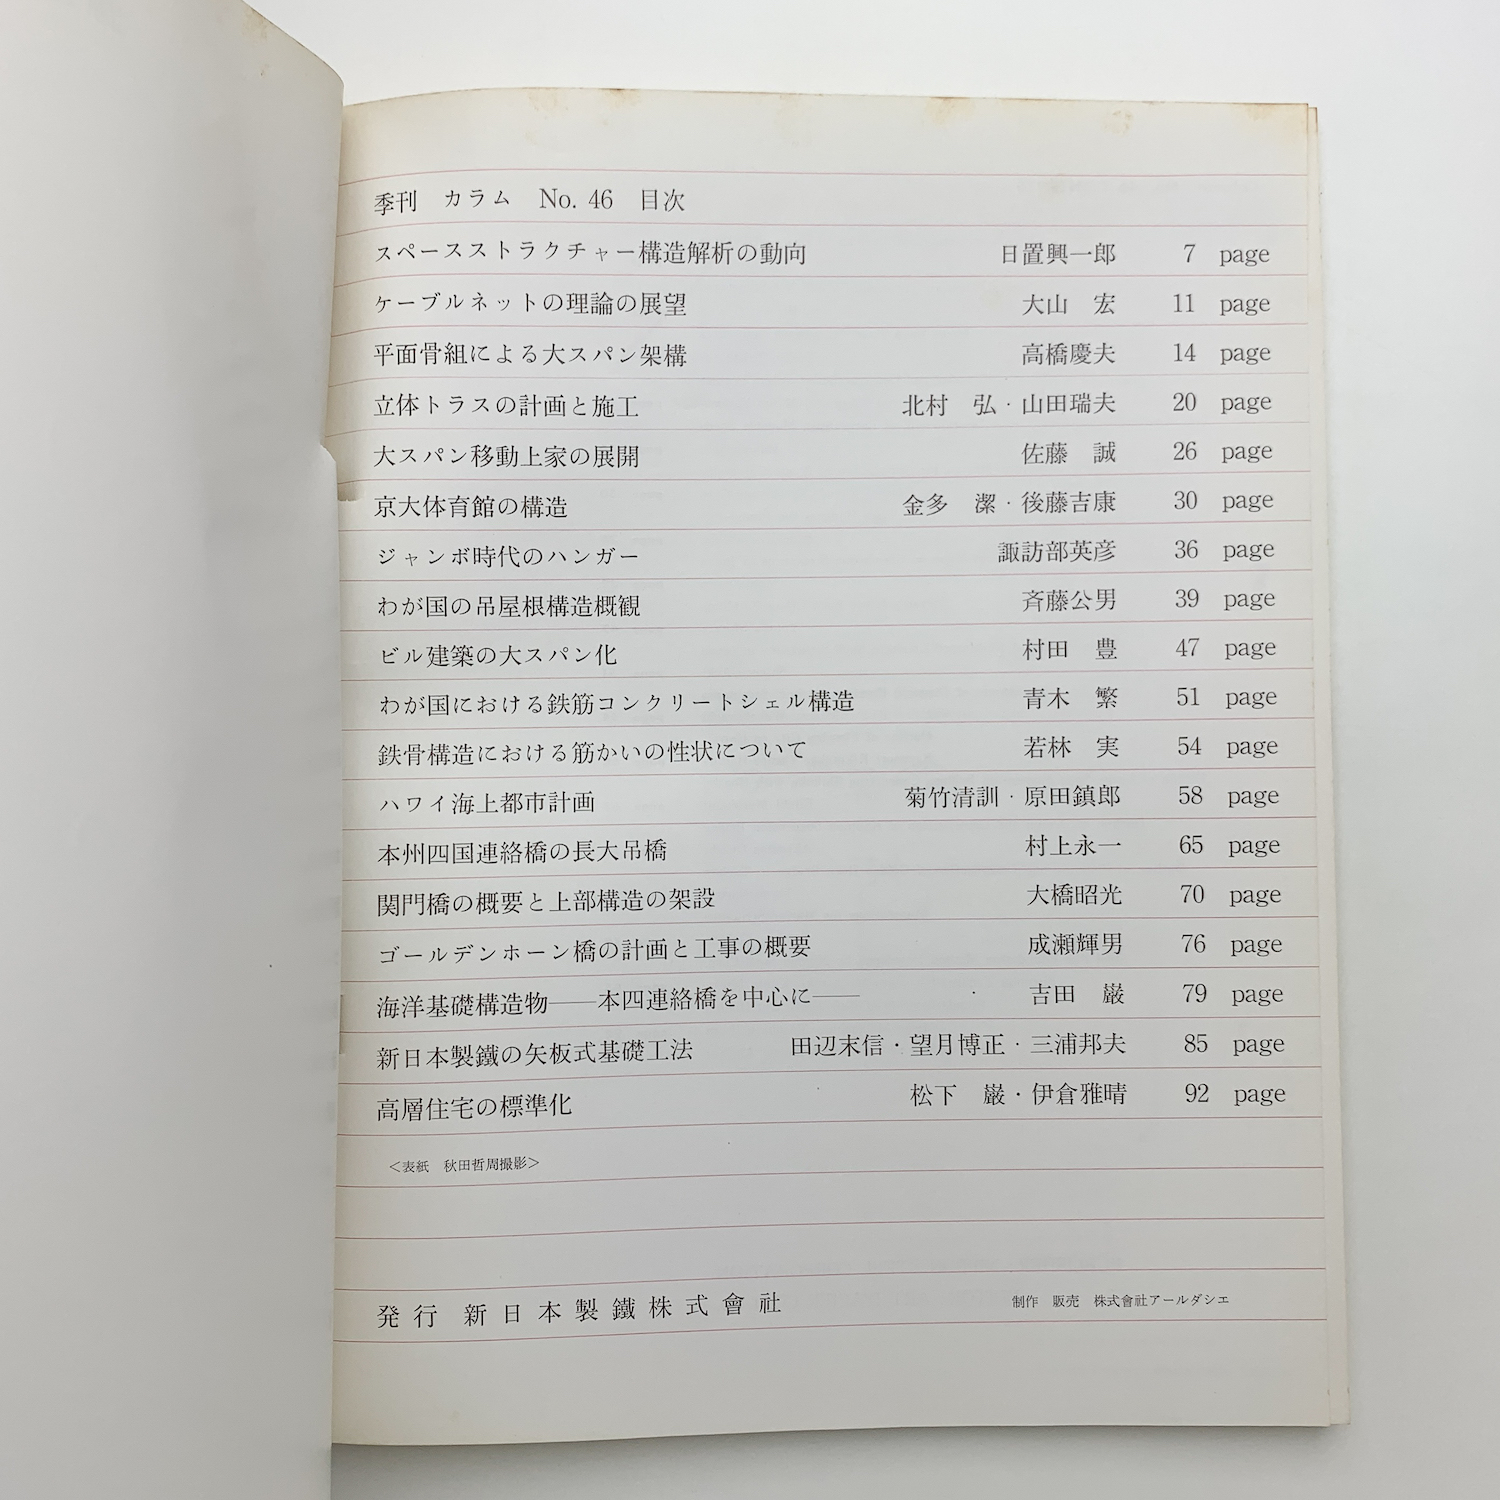 季刊　カラム　No. 46　目次
スペースストラクチャー構造解析の動向　日置興一郎　7　page
ケーブルネットの理論の展望　大山　宏　11　page
平面骨組による大スパン架構　高橋慶夫　14　page
立体トラスの計画と施工　北村　弘・山田瑞夫　20　page
大スパン移動上家の展開　佐藤　誠　26　page
京大体育館の構造　金多　潔・後藤吉康　30　page
ジャンボ時代のハンガー　諏訪部英彦　36　page
わが国の吊屋根構造概観　斉藤公男　39　page
ビル建築の大スパン化　村田　豊　47　page
わが国における鉄筋コンクリートシェル構造　青木　繁　51　page
鉄骨構造における筋かいの性状について　若林　実　54　page
ハワイ海上都市計画　菊竹清訓・原田鎮郎　58　page
本州四国連絡橋の長大吊橋　村上永一　65　page
関門橋の概要と上部構造の架設　大橋昭光　70　page
ゴールデンホーン橋の計画と工事の概要　成瀬輝男　76　page
海洋基礎構造物――本四連絡橋を中心に――　吉田　巌　79　page
新日本製鐵の矢板式基礎工法　田辺末信・望月博正・三浦邦夫　85　page
高層住宅の標準化　松下　巌・伊倉雅晴　92　page
＜表紙　秋田哲周撮影＞
発行　新日本製鐵株式會社　制作　販売　株式會社アールダシエ